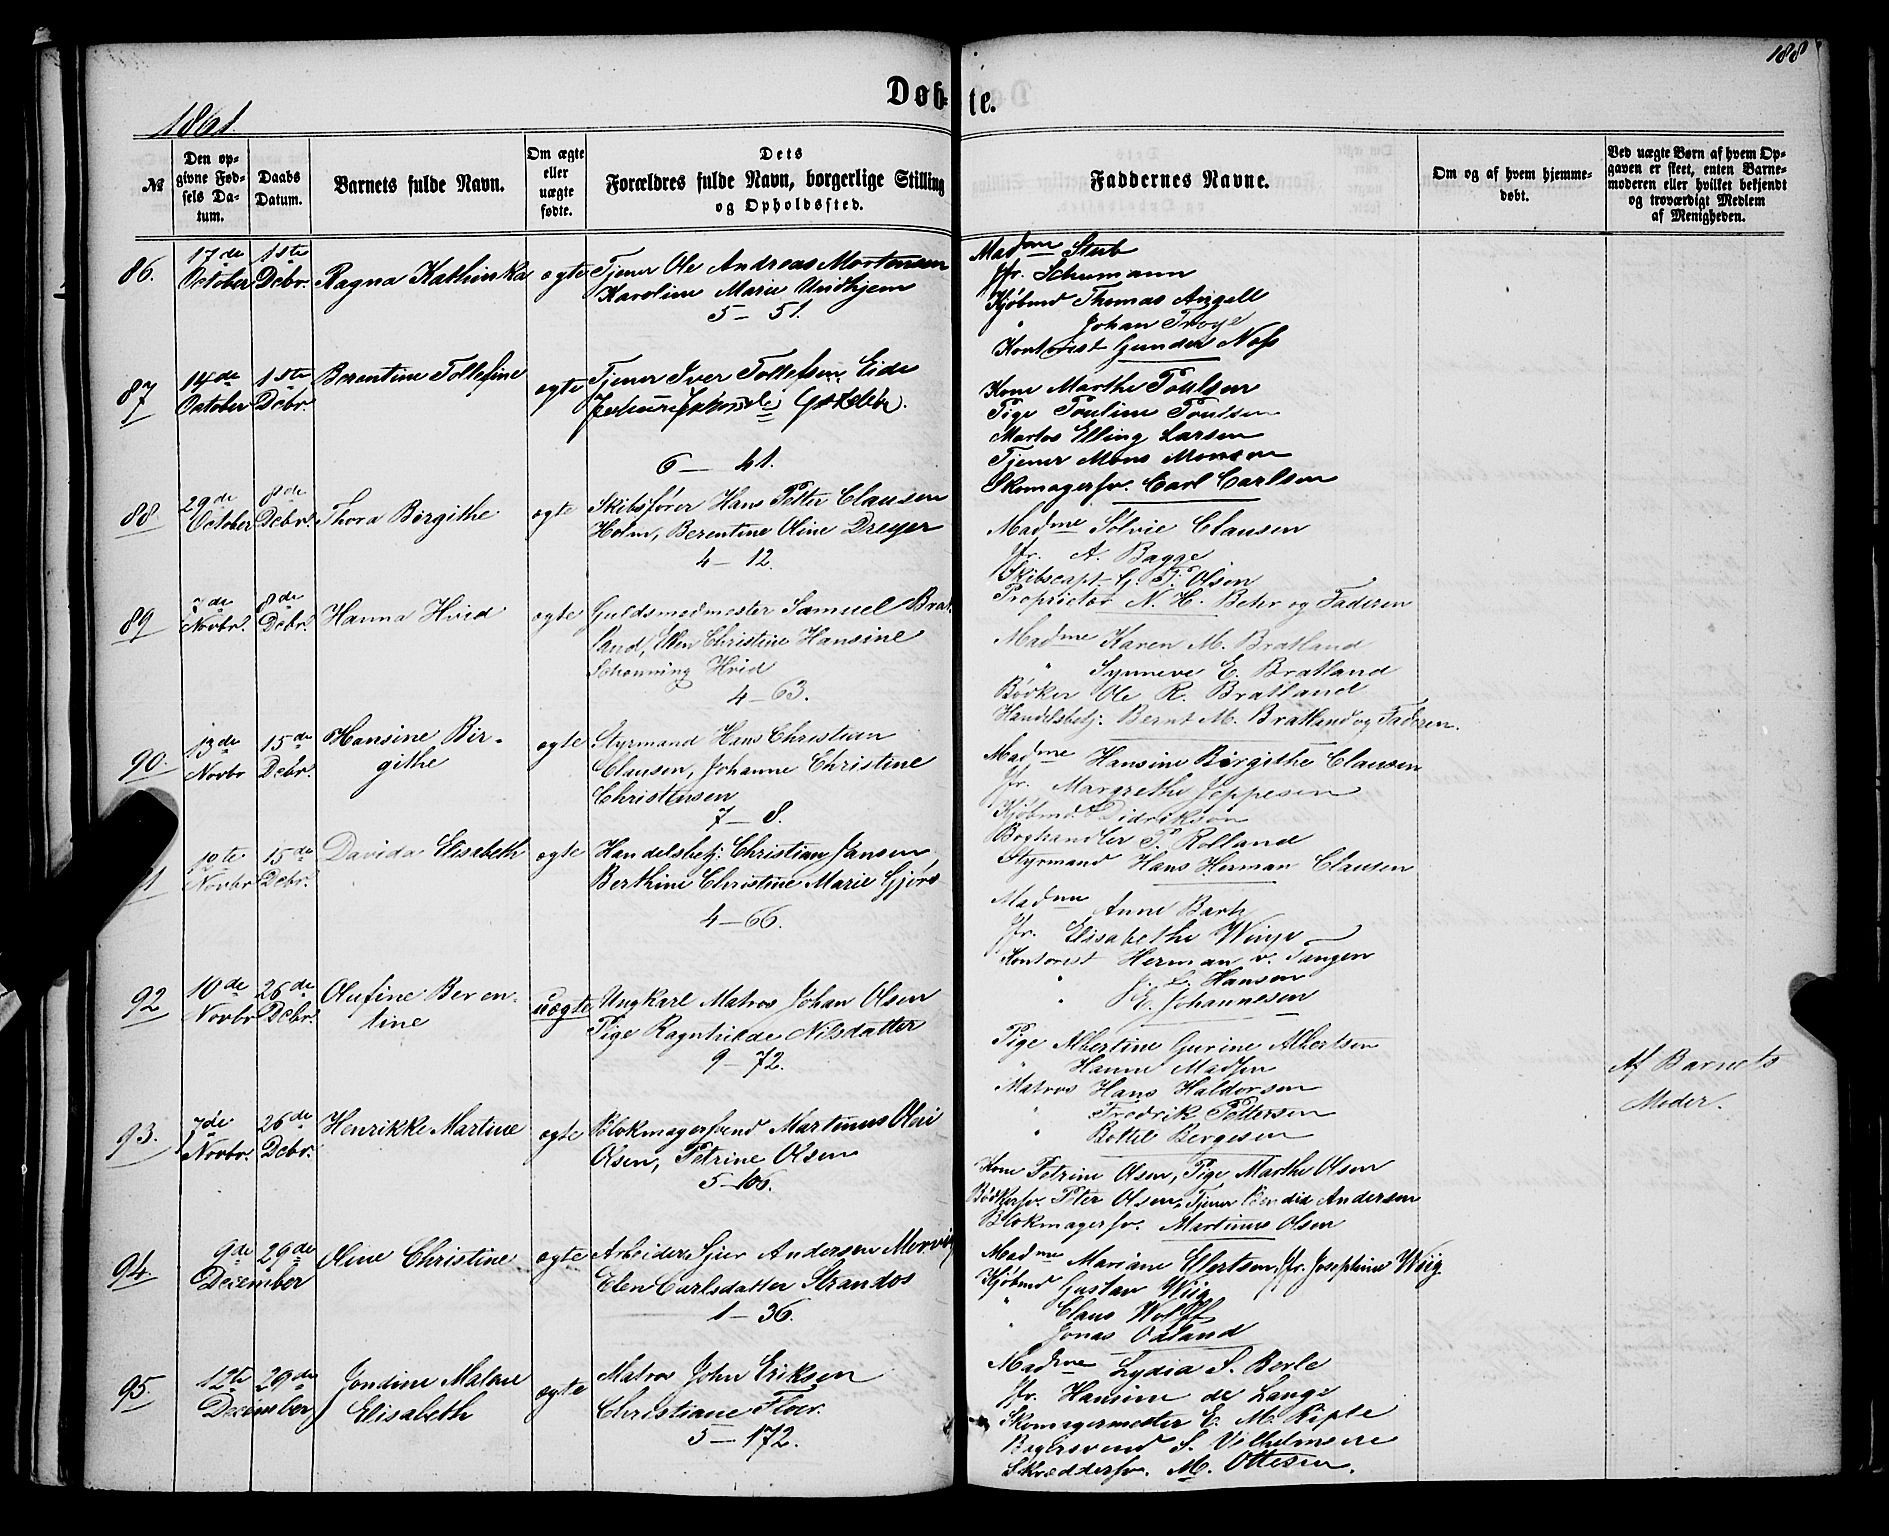 188
Døbte.
1861.
№
Den opgivne Fødsels Datum.
Daabs Datum.
Barnets fulde Navn.
Om ægte eller uægte fødte.
Dets Forældres fulde Navn, borgerlige Stilling og Opholdssted.
Faddernes Navne.
Om og af hvem hjemmedøbt.
Ved uægte Børn af hvem Opgaven er skeet, enten Barnemoderen eller hvilket bekjendt og troværdigt Medlem af Menigheden.
86.
17de October
1ste Debr.
Ragna Kathinka
ægte
Tjener Ole Andreas Mortensen
Karoline Marie Undhjem
5 – 51.
Madme Stub
Jfr. Schumann
Kjøbmd Thomas Angell
" Johan Troye
Kontorist Gunder Næss
87
14de October
1ste Debr.
Berentine Tollefine
ægte
Tjener Iver Tollefsen Eide
6 – 41.
Kone Marthe Poulsen
Pige Pouline Poulsen
Matros Elling Larsen
Tjener Mons Monsen
Skomagersv. Carl Carlsen
88
29de October
8de Debr.
Thora Birgithe
ægte
Skibsfører Hans Petter Clausen
Holm, Berentine Oline Dreyer
4 – 12.
Madme Sølvie Clausen
Jfr. A. Bagge
Skibscapt. G. T. Olsen
Proprietær N. H. Behr og Faderen
89
7de Novbr.
8de Debr.
Hanna Hvid
ægte
Guldsmedmester Samuel Brat-
land, Ellen Christine Hansine
Schønning Hvid
4 – 63.
Madme Karen M. Bratland
" Synneve E. Bratland
Bødker Ole R. Bratland
Handelsbetj. Bernt M. Bratland og Faderen.
90.
13de Novbr
15de Debr.
Hansine Bir-
githe
ægte
Styrmand Hans Christian
Clausen, Johanne Christine
Christensen
7 – 8.
Madme Hansine Birgithe Clausen
Jfr. Margrethe Joppesen
Kjøbmd. Didrikson
Boghandler P. Rolland
Styrmand Hans Herman Clausen
91
18te Novbr
15de Debr.
Davida Elisabeth
ægte
Handelsbetj: Christian Jansen,
Berthine Christine Marie Gjørs
4 – 66.
Madme Anne Barth
Jfr. Elisabethe Winge
Kontorist Herman v. Tangen
" J. L. Hansen
" E. Johannesen
92
10de Novbr
26de Debr.
Olufine Beren-
tine
uægte
Ungkarl Matros Johan Olsen
Pige Ragnhilde Nilsdatter
9 – 72.
Pige Albertine Gurine Albertsen
" Hanne Madsen
Matros Hans Haldorsen
" Fredrik Pettersen
" Bottel Bergesen
Af Barnets
Moder.
93.
7de Novbr.
26de Debr.
Henrikke Martine
ægte
Blokmagersvend Martinus Olai
Olsen, Petrine Olsen
5 – 100.
Kone Petrine Olsen, Pige Marthe Olsen
Bødkersv. Peter Olsen, Tjener Bendix Andersen
Blokmagersv. Martinus Olsen
94.
9de December
29de
Oline Christine
ægte
Arbeider Sjur Andersen Mervig
Elen Carlsdatter Strandos
1 – 36.
Madme Mariane Ellertsen, Jfr. Josephine Wiig
Kjøbmd Gustav Wiig
" Claus Wolff
" Jonas Ødland
95.
12te December
29de
Jondine Malene
Elisabeth
ægte
Matros John Eriksen
Christiane Floer.
5 – 172.
Madme Lydia S. Berle
Jfr. Hansine de Lange
Skomagermester E. M. Riple
Bagersvend S. Vilhelmsen
Skræddersv. M. Ottesen.